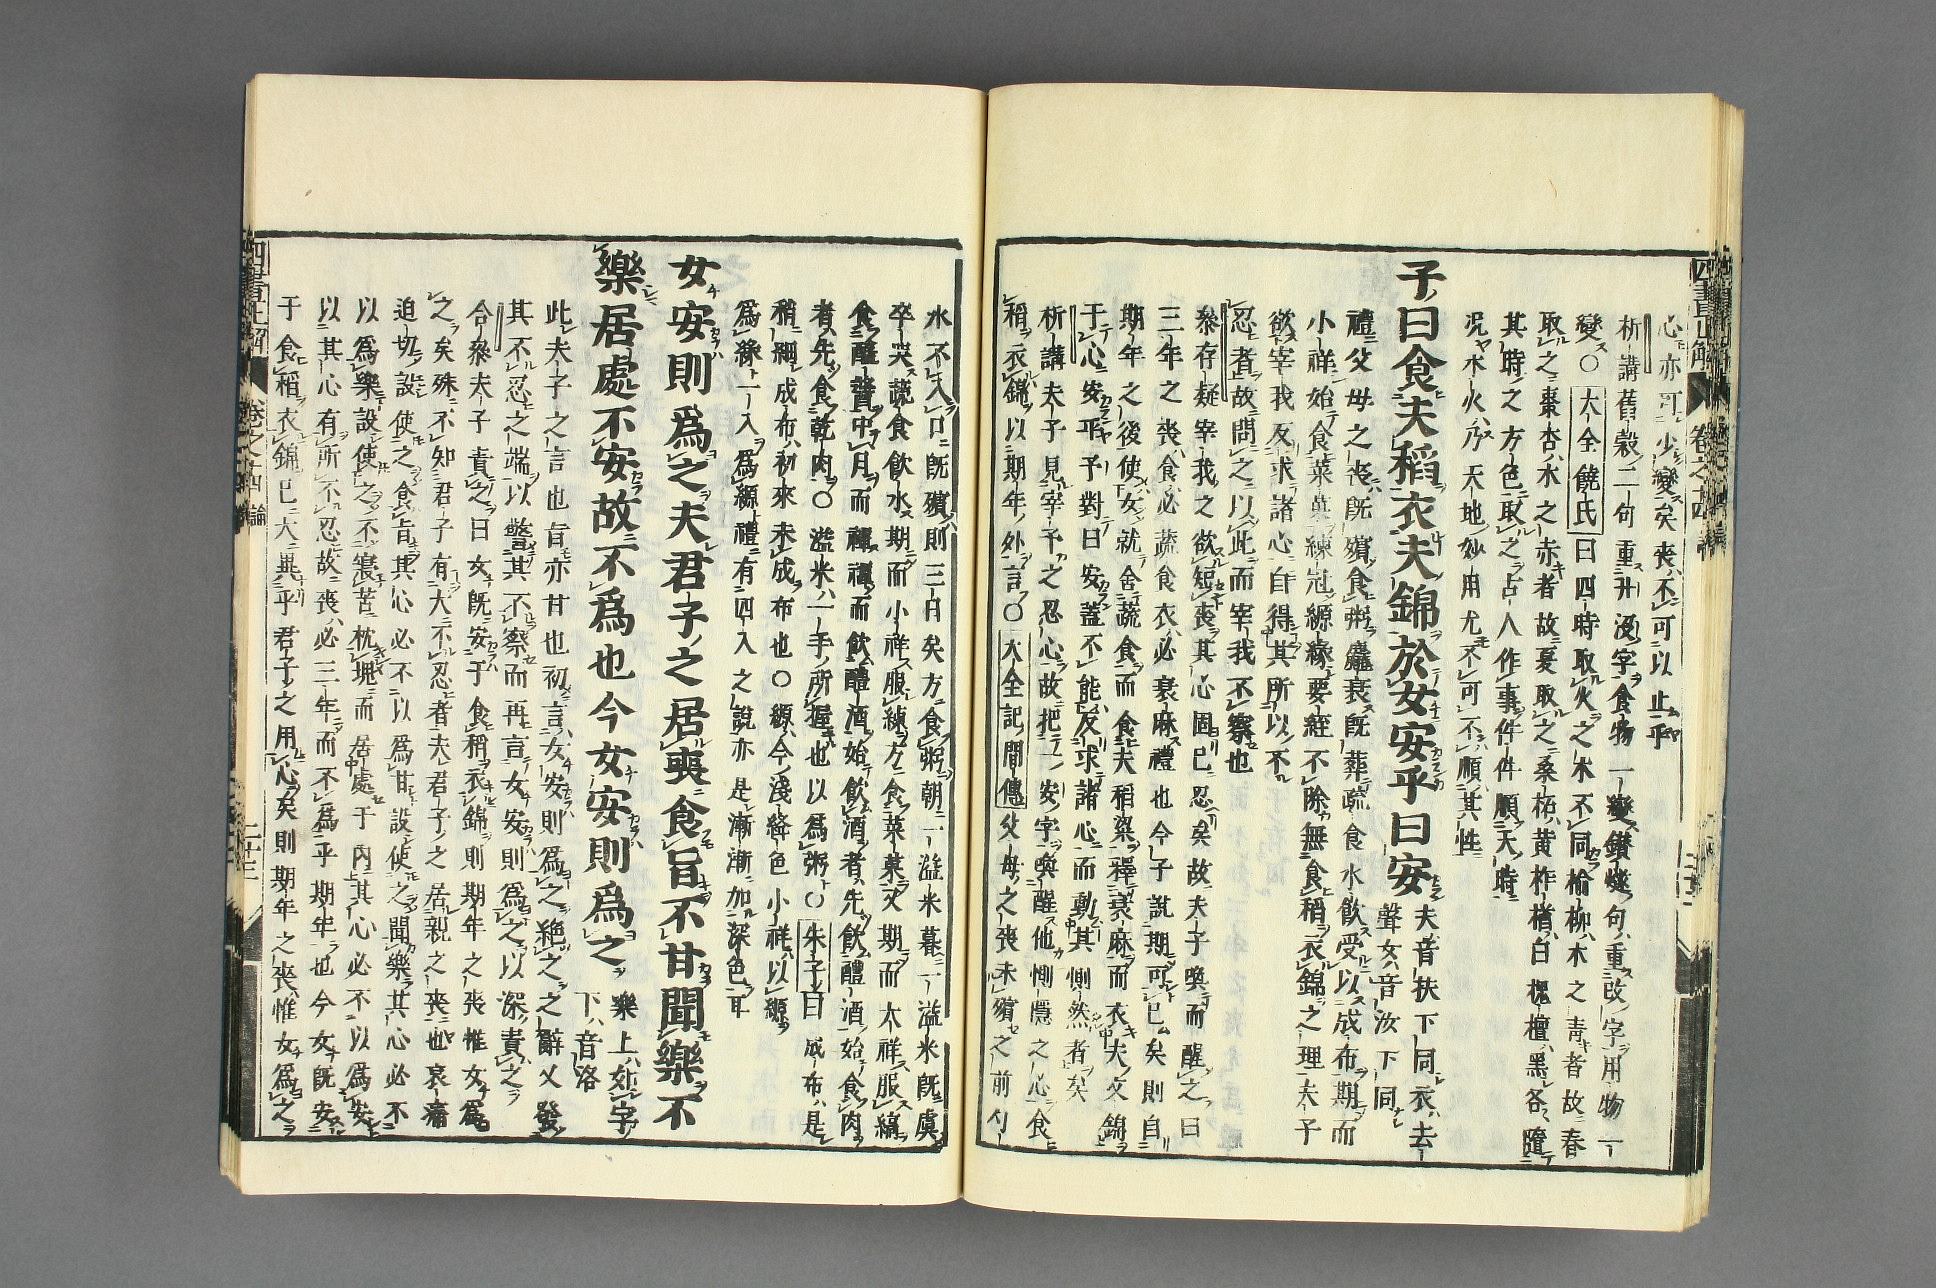 心亦可少變矣喪不可以止乎
析講舊穀二句重升沒字食物一變鑽燧句重改字用物一
變〇大全饒氏曰四時取火之木不同榆柳木之青者故春
取之棗杏木之赤者故夏取之桑柘黄柞楢白槐檀黑各隨
其時之方色取之占人作事件件順天時
況水火乃天地妙用尤不可不順其性
子曰食夫稻衣夫錦於女安乎曰安
夫音扶下同衣去
聲女音汝下同
禮父母之喪既殯食粥麤衰既葬疏食水飲受以成布期而
小祥始食菜菓練冠縓緣要絰不除無食稻衣錦之理夫子
欲宰我反求諸心自得其所以不
忍者故問之以此而宰我不察也
蔡存疑宰我之欲短喪其心固已忍矣故夫子喚而醒之曰
三年之喪食必蔬食衣必衰麻禮也今子說期可已矣則自
期年之後使女就舍蔬食而食夫稻粱釋衰麻而衣夫文錦
于心安乎予對曰安蓋不能反求諸心而動其惻然者矣
析講夫子見宰予之忍心故把一安字喚醒他惻隱之心食
稻衣錦以期年外言〇大全記間傳父母之喪未殯之前勺
水不入口既殯則三日矣方食粥朝一溢米暮一溢米既虞
卒哭蔬食飲水期而小祥服練方食菜菓又期而大祥服縞
食醯醬中月而禫禫而飲醴酒始飲酒者先飲醴酒始食肉
者先食乾肉〇溢米一手所握也以為粥〇朱子曰成布是
稍細成布初來未成布也〇縓今淺絳色小祥以縓
為緣一入為縓禮有四入之說亦是漸漸加深色耳
女安則為之夫君子之居喪食旨不甘聞樂不
樂居處不安故不為也今女安則為之
樂上如字
下音洛
此夫子之言也旨亦甘也初言女安則為之絕之之辭又發
其不忍之端以警其不察而再言女安則為之以深責之
合蔡夫子責之曰女既安于食稻衣錦則期年之喪惟女為
之矣殊不知君子有大不忍者夫君子之居親之喪也哀痛
迫切設使之食旨其心必不以為甘設使之聞樂其心必不
以為樂設使之不寢苫枕塊而居處于内其心必不以為安
以其心有所不忍故喪必三年而不為乎期年也今女既安
于食稻衣錦已大異乎君子之用心矣則期年之喪惟女為之